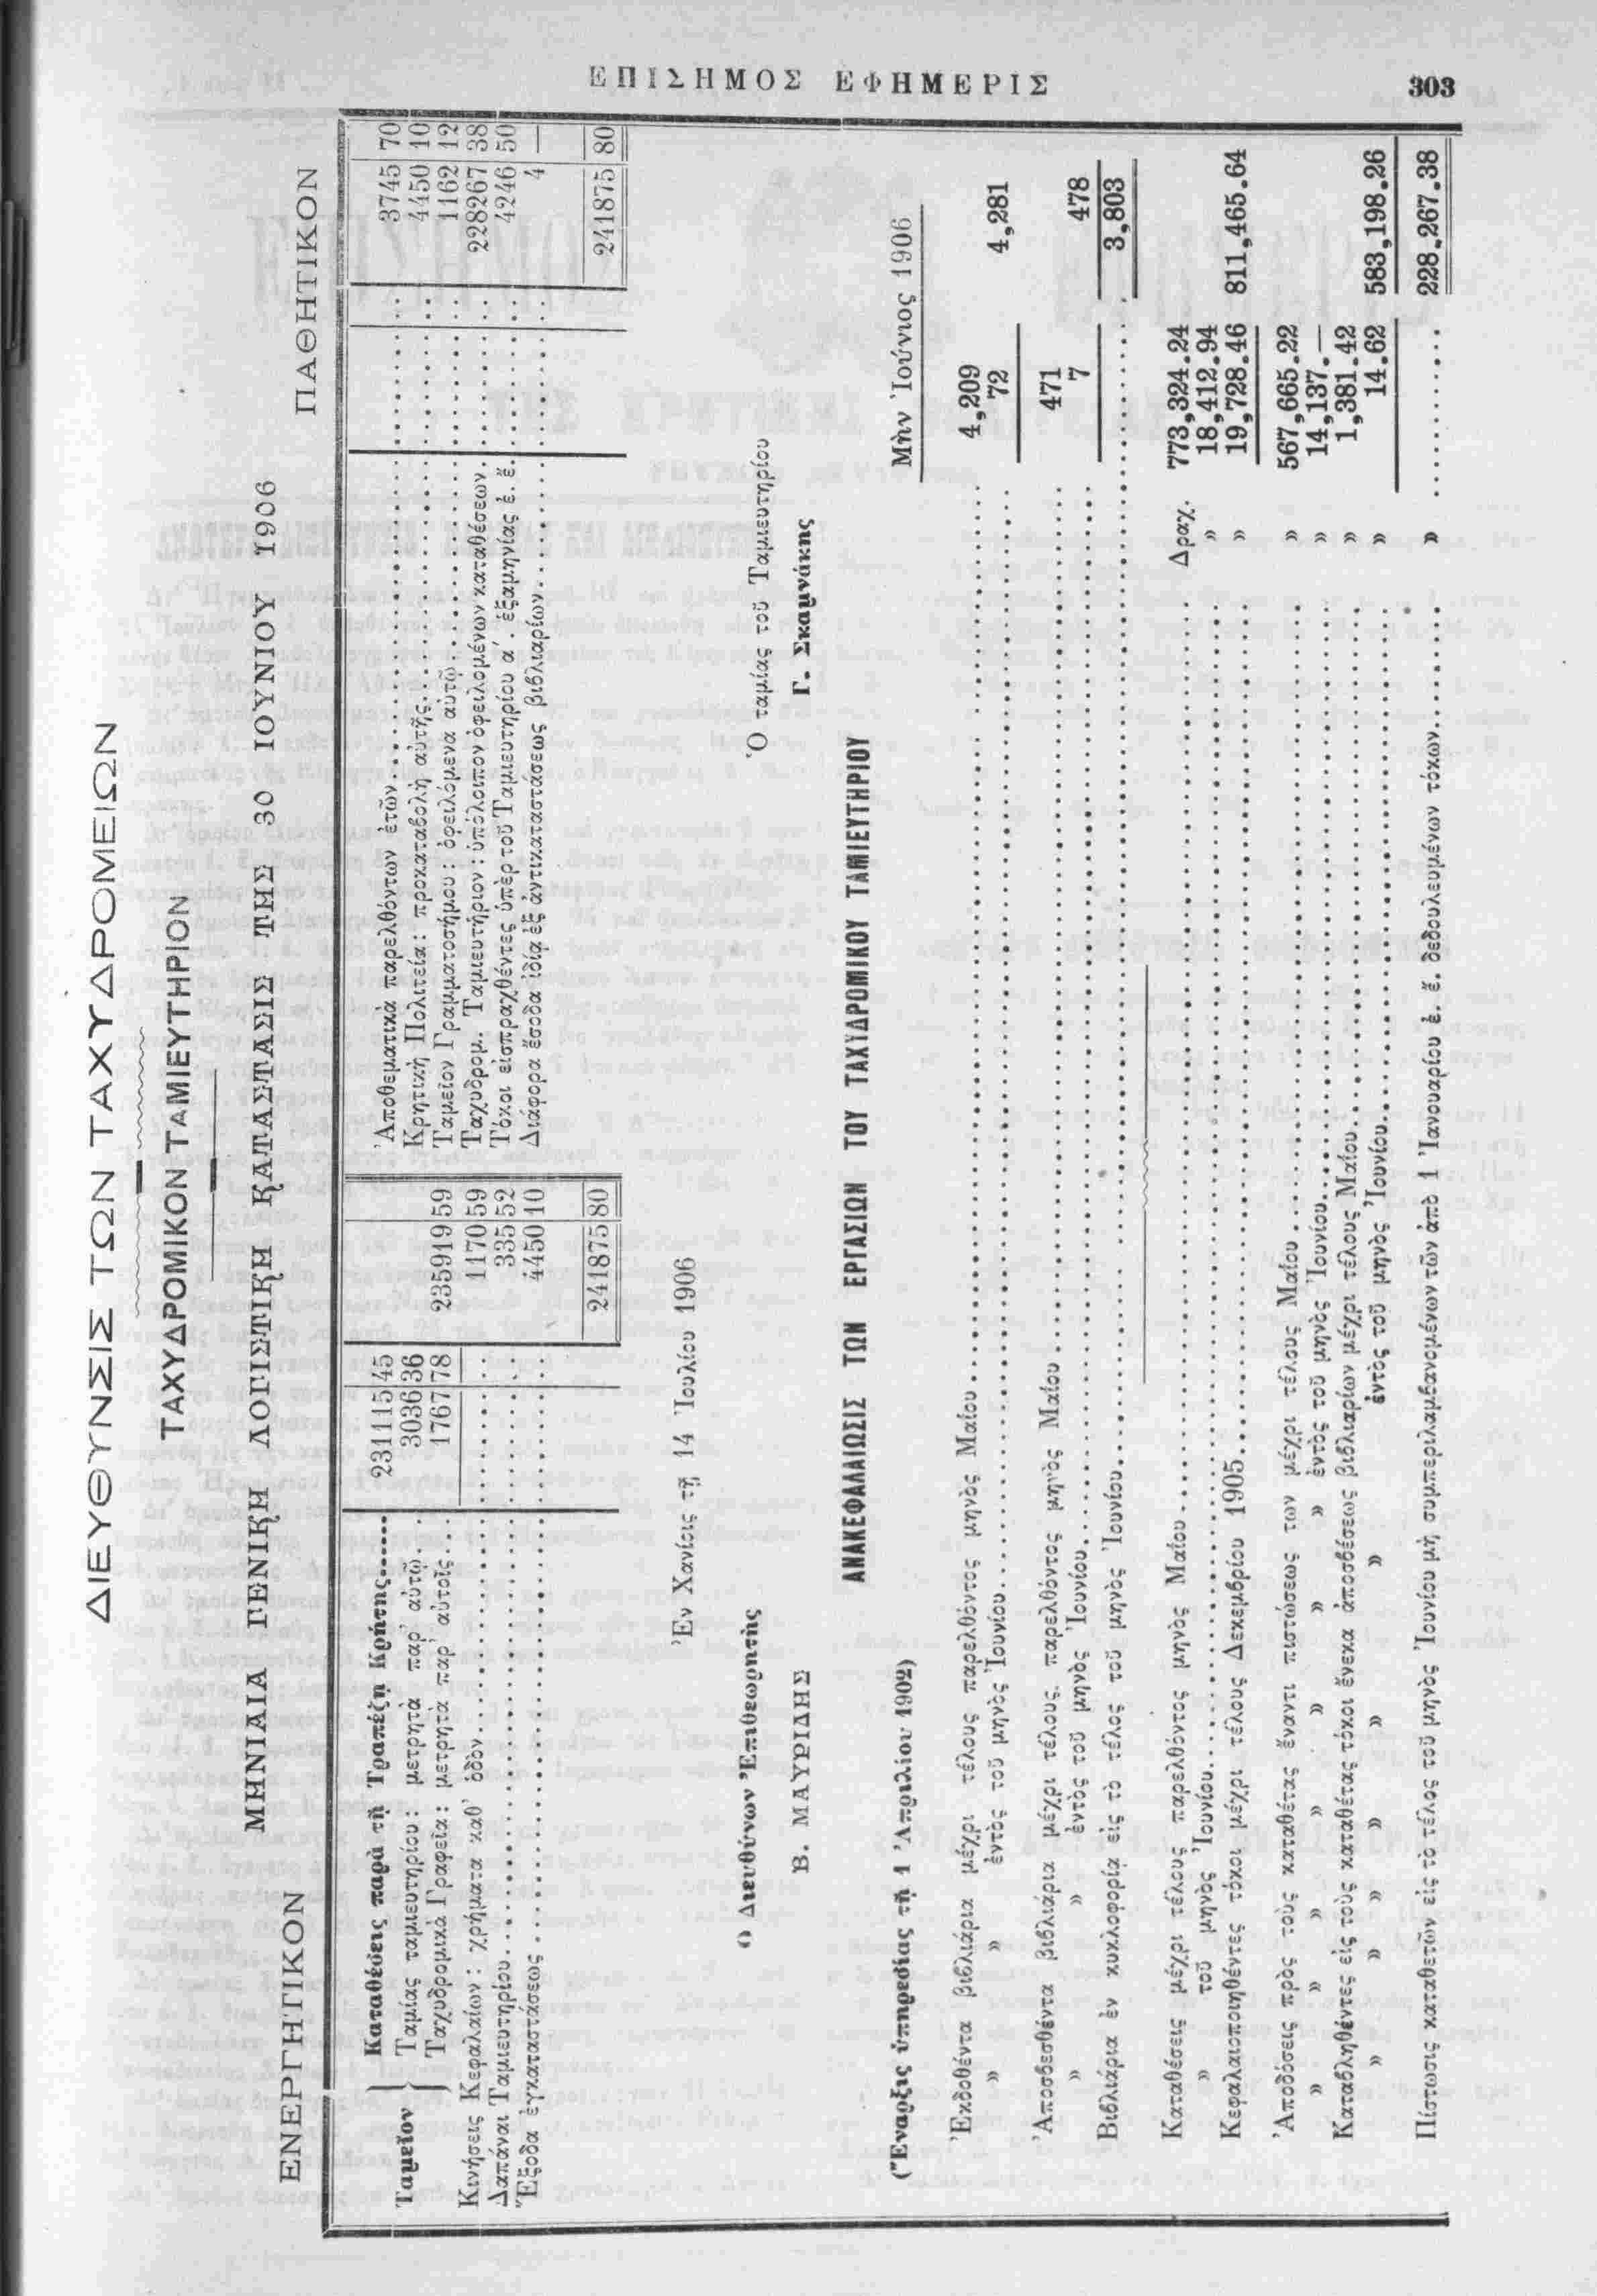 ΕΠΙΣΗΜΟΣ ΕΦΗΜΕΡΙΣ 303
ΔΙΕΥΘΥΝΣΙΣ ΤΩΝ ΤΑΧΥΔΡΟΜΕΙΩΝ
ΤΑΧΥΔΡΟΜΙΚΟΝ ΤΑΜΙΕΥΤΗΡΙΟΝ
ΜΗΝΙΑΙΑ ΓΕΝΙΚΗ ΛΟΓΙΣΤΙΚΗ ΚΑΤΑΣΤΑΣΙΣ ΤΗΣ 30 ΙΟΥΝΙΟΥ 1906
ΕΝΕΡΓΗΤΙΚΟΝ
Καταθέσεις παρὰ τῇ Τραπέζῃ Κρήτης...... 231115 45
Ταμεῖον
Ταμίας ταμιευτηρίου: μετρητὰ παρ' αὐτῷ.. 3036 36
Ταχυδρομικὰ Γραφεῖα: μετρητὰ παρ' αὐτοῖς... 1767 78 235919 59
Κινήσεις Κεφαλαίων: χρήματα καθ' ὁδὸν...... 1170 59
Δαπάναι Ταμιευτηρίου...... 335 52
Ἔξοδα ἐγκαταστάσεως...... 4450 10
241875 80
ΠΑΘΗΤΙΚΟΝ
Ἀποθεματικὰ παρελθόντων ἐτῶν...... 3745 70
Κρητικὴ Πολιτεία: προκαταβολὴ αὐτῆς...... 4450 10
Ταμεῖον Γραμματοσήμου: ὀφειλόμενα αὐτῷ...... 1162 12
Ταχυδρομ. Ταμιευτήριον: ὑπόλοιπον ὀφειλομένων καταθέσεων. 228267 38
Τόκοι εἰσπραχθέντες ὑπὲρ τοῦ Ταμιευτηρίου α΄. ἑξαμηνίας ἐ. ἔ. 4246 50
Διάφορα ἔσοδα ἰδίᾳ ἐξ ἀντικαταστάσεως βιβλιαρίων...... 4 —
241875 80
Ἐν Χανίοις τῇ 14 Ἰουλίου 1906
Ὁ Διευθύνων Ἐπιθεωρητὴς
Β. ΜΑΥΡΙΔΗΣ
Ὁ ταμίας τοῦ Ταμιευτηρίου
Γ. Σκαμνάκης
ΑΝΑΚΕΦΑΛΑΙΩΣΙΣ ΤΩΝ ΕΡΓΑΣΙΩΝ ΤΟΥ ΤΑΧΥΔΡΟΜΙΚΟΥ ΤΑΜΙΕΥΤΗΡΙΟΥ
(Ἔναρξις ὑπηρεσίας τῇ 1 Ἀπριλίου 1902) Μὴν Ἰούνιος 1906
Ἐκδοθέντα βιβλιάρια μέχρι τέλους παρελθόντος μηνὸς Μαίου...... 4,209
» » ἐντὸς τοῦ μηνὸς Ἰουνίου...... 72 4,281
Ἀποσβεσθέντα βιβλιάρια μέχρι τέλους παρελθόντος μηνὸς Μαίου...... 471
» » ἐντὸς τοῦ μηνὸς Ἰουνίου...... 7 478
Βιβλιάρια ἐν κυκλοφορίᾳ εἰς τὸ τέλος τοῦ μηνὸς Ἰουνίου...... 3,803
Καταθέσεις μέχρι τέλους παρελθόντος μηνὸς Μαίου...... Δραχ. 773,324.24
» τοῦ μηνὸς Ἰουνίου...... » 18,412.94
Κεφαλαιοποιηθέντες τόκοι μέχρι τέλους Δεκεμβρίου 1905...... » 19,728.46 811,465.64
Ἀποδόσεις πρὸς τοὺς καταθέτας ἔναντι πιστώσεως των μέχρι τέλους Μαίου...... » 567,665.22
» » » » » » ἐντὸς τοῦ μηνὸς Ἰουνίου...... » 14,137.—
Καταβληθέντες εἰς τοὺς καταθέτας τόκοι ἕνεκα ἀποσβέσεως βιβλιαρίων μέχρι τέλους Μαίου...... » 1,381.42
» » » » » ἐντὸς τοῦ μηνὸς Ἰουνίου...... » 14.62 583,198.26
Πίστωσις καταθετῶν εἰς τὸ τέλος τοῦ μηνὸς Ἰουνίου μὴ συμπεριλαμβανομένων τῶν ἀπὸ 1 Ἰανουαρίου ἐ. ἔ. δεδουλευμένων τόκων...... » 228.267.38